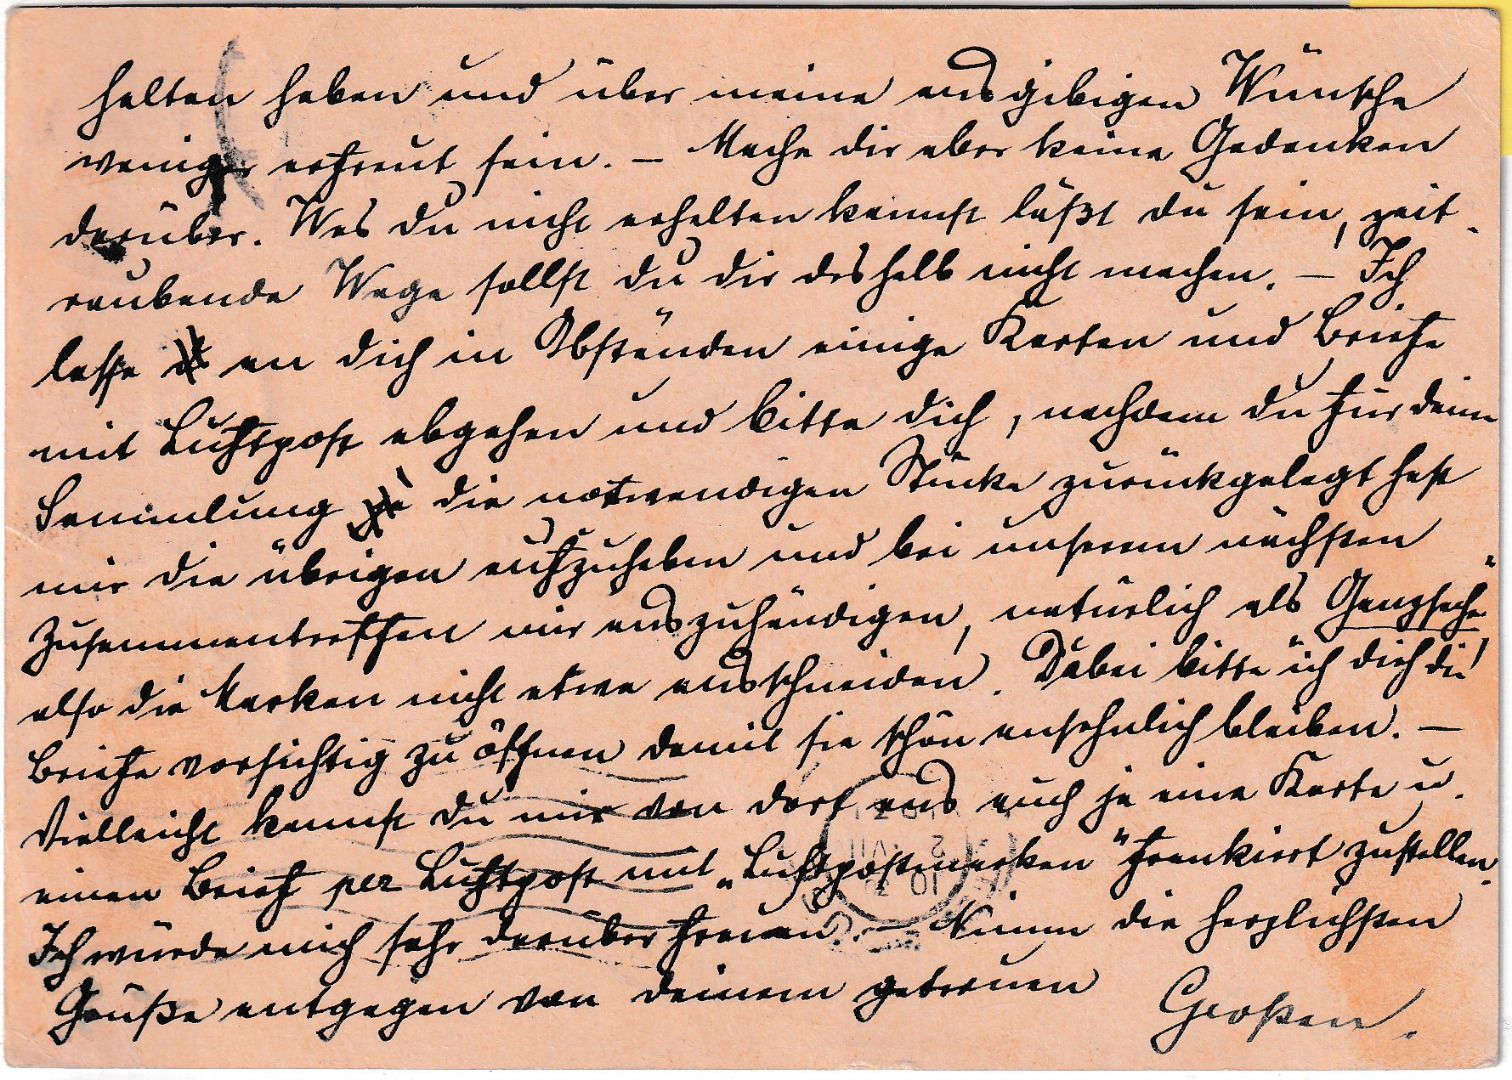 halten haben und über meine ausgibigen Wünsche
weniger erfreut sein. – Mache dir aber keine Gedanken
darüber. Was du nicht erhalten kannst läßt du sein, zeit-
raubende Wege sollst du dir deshalb nicht machen. – Ich
lasse an dich in Abständen einige Karten und Briefe
mit Luftpost abgehen und bitte dich, nachdem du für deine
Sammlung die notwendigen Stücke zurückgelegt hast
mir die übrigen aufzuheben und bei unserem nächsten
Zusammentreffen mir auszuhändigen, natürlich als Ganzsache"
also die Marken nicht etwa ausschneiden. Dabei bitte ich dich die!
Briefe vorsichtig zu öffnen damit sie schön ansehnlich bleiben. –
Vielleicht kannst du mir von dort aus auch je eine Karte u.
einen Brief per Luftpost mit „Luftpostmarken" frankiert zustellen.
Ich würde mich sehr darüber freuen. – Nimm die herzlichsten
Grüße entgegen von deinem getreuen